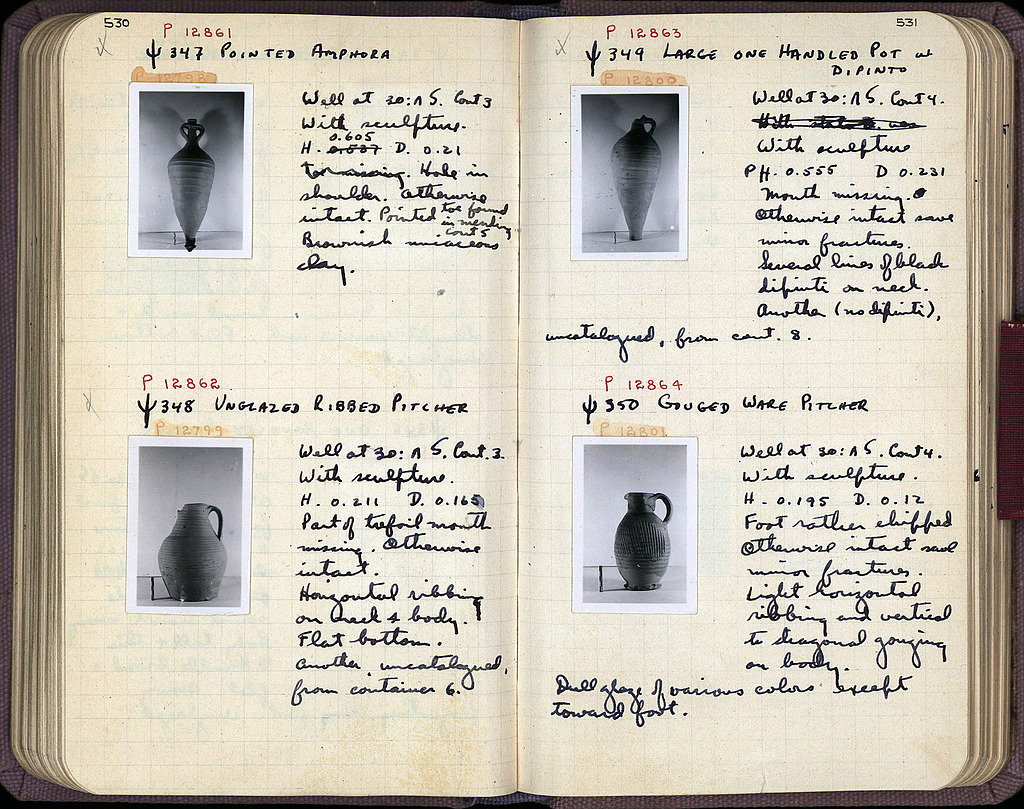 530
P 12861
Ψ 347 POINTED AMPHORA
P 12798
Well at 30:ΛS. Cont 3
With sculpture.
0.605
H. 0.537 D. 0.21
toe missing. Hole in
shoulder. Otherwise
intact. Pointed toe found
in mending
Cont 5
Brownish micaceous
clay.
P 12862
Ψ 348 UNGLAZED RIBBED PITCHER
P 12799
Well at 30:ΛS. Cont. 3.
With sculpture.
H. 0.211 D. 0.165
Part of trefoil mouth
missing. Otherwise
intact.
Horizontal ribbing
on neck & body.
Flat bottom.
Another, uncatalogued,
from container 6.
531
P 12863
Ψ 349 LARGE ONE HANDLED POT W
DIPINTO
P 12800
Well at 30:ΛS. Cont 4.
With sculpture
PH. 0.555 D 0.231
Mouth missing.
Otherwise intact save
minor fractures.
Several lines of black
dipinti on neck.
Another (no dipinti),
uncatalogued, from cont. 8.
P 12864
Ψ 350 GOUGED WARE PITCHER
P 12801
Well at 30:ΛS. Cont 4.
With sculpture.
H. 0.195 D. 0.12
Foot rather chipped
Otherwise intact save
minor fractures.
Light horizontal
ribbing and vertical
to diagonal gouging
on body.
Dull glaze of various colors except
toward foot.